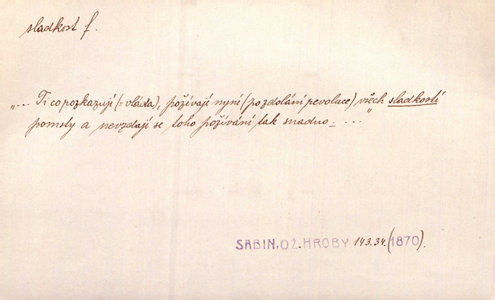 sladkost f.
„... Ti co rozkazují (= vláda), požívají nyní (po zdolání revoluce) všech sladkostí
pomsty a nevzdají se toho požívání tak snadno - ... "
SABIN, OŽ. HROBY 143.34. (1870).